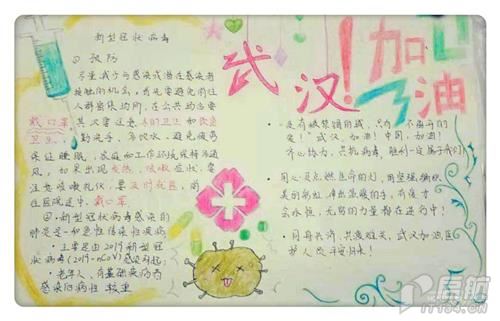 新型冠状病毒
武汉!加油
① 预防
尽量减少与感染或潜在感染者
接触的机会，首先要避免前往
人群密集场所，在公共场合要
戴口罩
其次要注意
手的卫生
和
饮食
卫生
，勤洗手、多饮水，避免疲劳
保证睡眠，家庭和工作环境保持通
风，如果出现
发热，咳嗽
症状，要
注意咳嗽礼仪，要
及时就医
，前
往医院途中，
戴口罩
② 新型冠状病毒感染的
肺炎是一种急性传染性疾病
主要是由2019新型冠
状病毒(2019-nCoV)感染引起；
老年人、有基础疾病者
感染后病情较重
是有破禁锢的城，只有不离开的
爱！"武汉，加油！中国，加油！
齐心协力，共抗病毒，胜利一定属于我们
用心灵点燃生命的灯，用坚强编织
美的彩虹，伸出温暖的手，有你才
会永恒，无穷的力量潜在进行中！
同舟共济，共渡难关，武汉加油医护
人员平安归来！